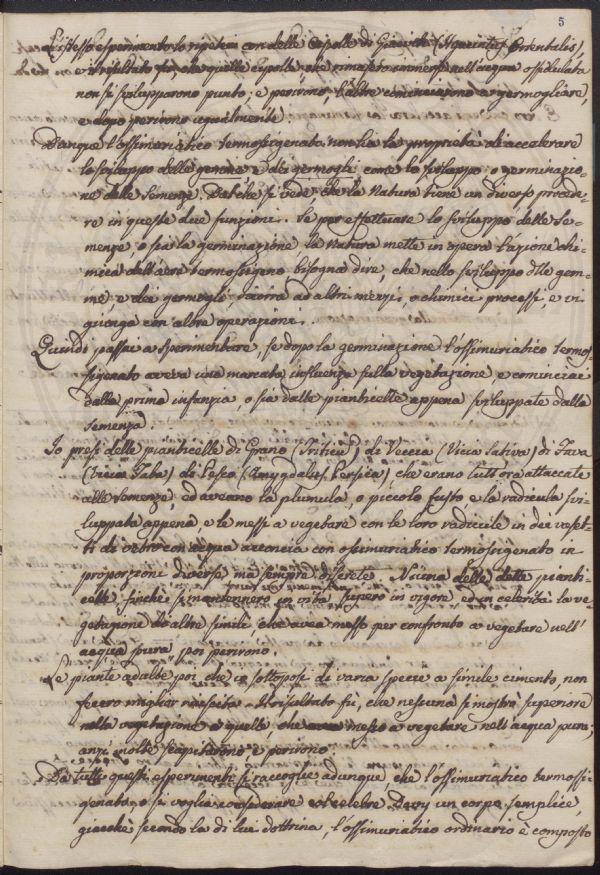 5
L'istesso esperimento lo ripetei con delle Cipolle di Giacinto (Hyacintus Orientalis),
e il risultato fu, che quelle cipolle che rimasero immerse nell'acqua ossidulata
non si svilupparono punto, e perirono, l'altre cominciarono a germogliare,
e dopo perirono egualmente.
Dunque l'ossimuriatico termossigenato non ha la proprietà di accelerare
lo sviluppo delle gemme e dei germogli come lo sviluppo o germinazio=
ne delle Semenze. Dal che si vede, che la Natura tiene un diverso procede=
re in queste due funzioni. Se per effettuare lo sviluppo delle Se=
menze, o sia la germinazione la Natura mette in opera l'azione chi=
mica dell'aere termossigeno bisogna dire, che nello sviluppo delle gem=
me e dei germogli ricorra ad altri mezzi, o chimici processi, e vi
giunga con altre operazioni.
Quindi passai a sperimentare, se dopo la germinazione l'ossimuriatico termos=
sigenato aveva una marcata influenza sulla vegetazione, e cominciai
dalla prima infanzia, o sia dalle pianticelle appena sviluppate dalla
Semenza.
Io presi delle pianticelle di Grano (Triticum) di Veccia (Vicia Sativa) di Fava
(Vicia Faba) di Pesco (Amygdalus Persica) che erano tuttora attaccate
alle Semenze, ed aveano la plumula, o piccolo fusto, e la radicula svi=
luppata appena, e le messi a vegetare con le loro radicule in dei vaset=
ti di vetro con acqua acconcia con ossimuriatico termossigenato in
proporzioni diverse, ma sempre discrete. Niuna delle dette pianti=
celle finchè si mantennero in vita, superò in vigore ed in celerità la ve=
getazione le altre simili che avea messo per confronto a vegetare nell'
acqua pura, poi perirono.
Le piante adulte poi, che io sottoposi di varia specie a simile cimento, non
fecero miglior riuscita. Il risultato fu, che nessuna si mostrò superiore
nella vegetazione a quelle, che messo a vegetare nell'acqua pura,
anzi molte scapitarono e perirono.
Da tutti questi esperimenti si raccoglie adunque, che l'ossimuriatico termossi=
genato, o si voglia considerare col celebre Davy un corpo semplice,
giacchè secondo la di lui dottrina, l'ossimuriatico ordinario è composto